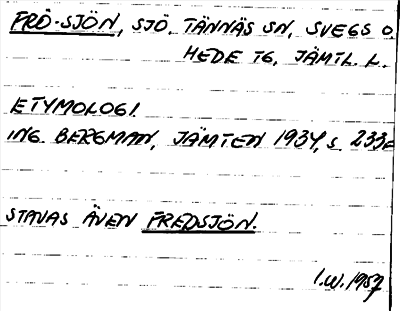 FRÖ-SJÖN, SJÖ. TÄNNÄS SN, SVEGS O.
HEDE TG, JÄMTL. L.
ETYMOLOGI.
ING. BERGMAN, JÄMTEN 1934, S. 233
STAVAS ÄVEN FREDSJÖN.
I.W. 1957